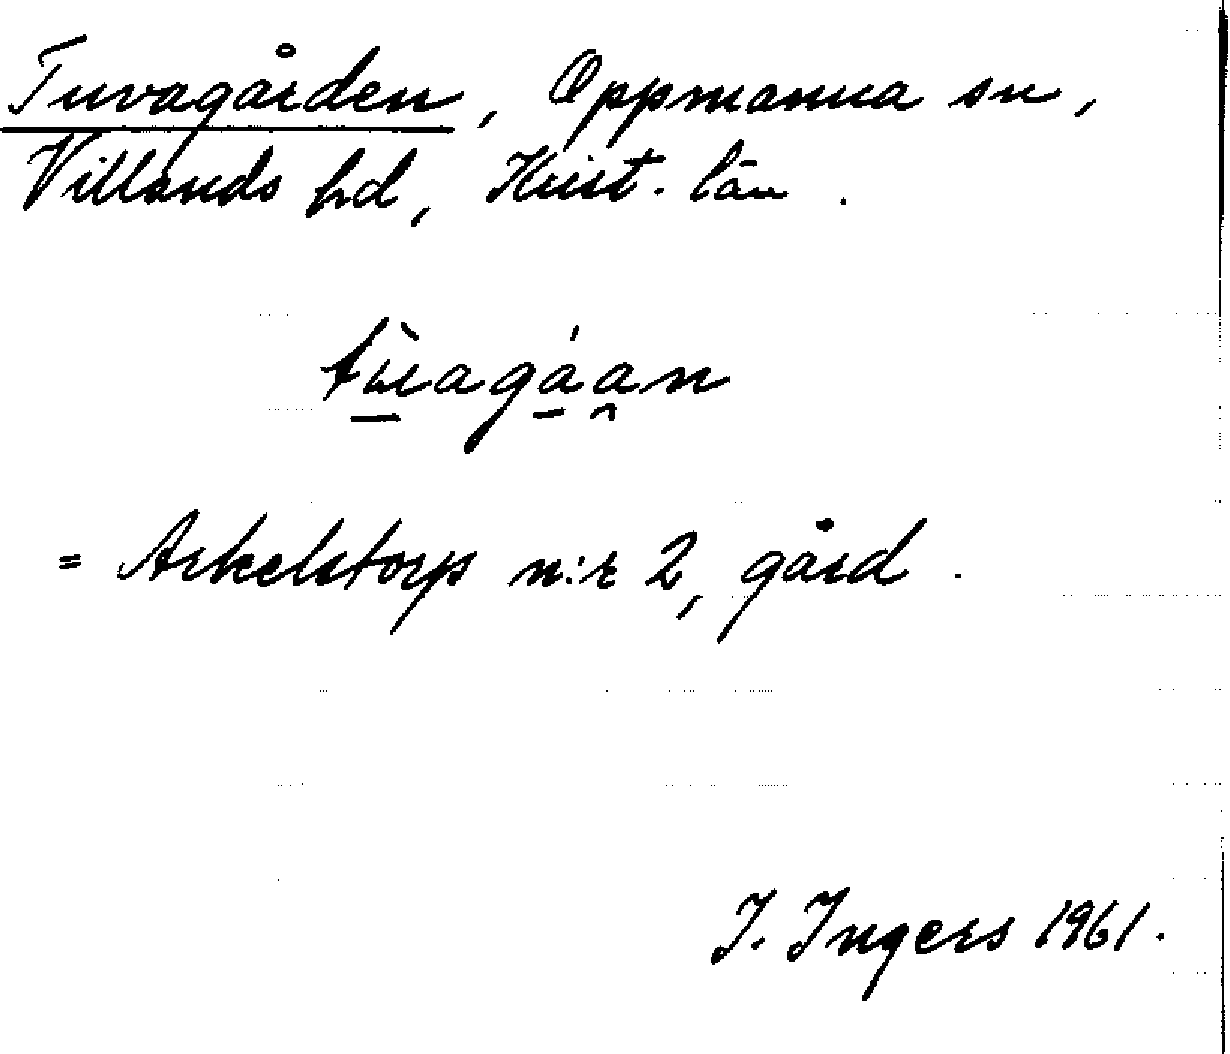 Tuvagården, Oppmanna sn,
Villands hd, Krist. län.
tù̱agá̱a̯n
= Arkelstorp n:r 2, gård.
I. Ingers 1961.